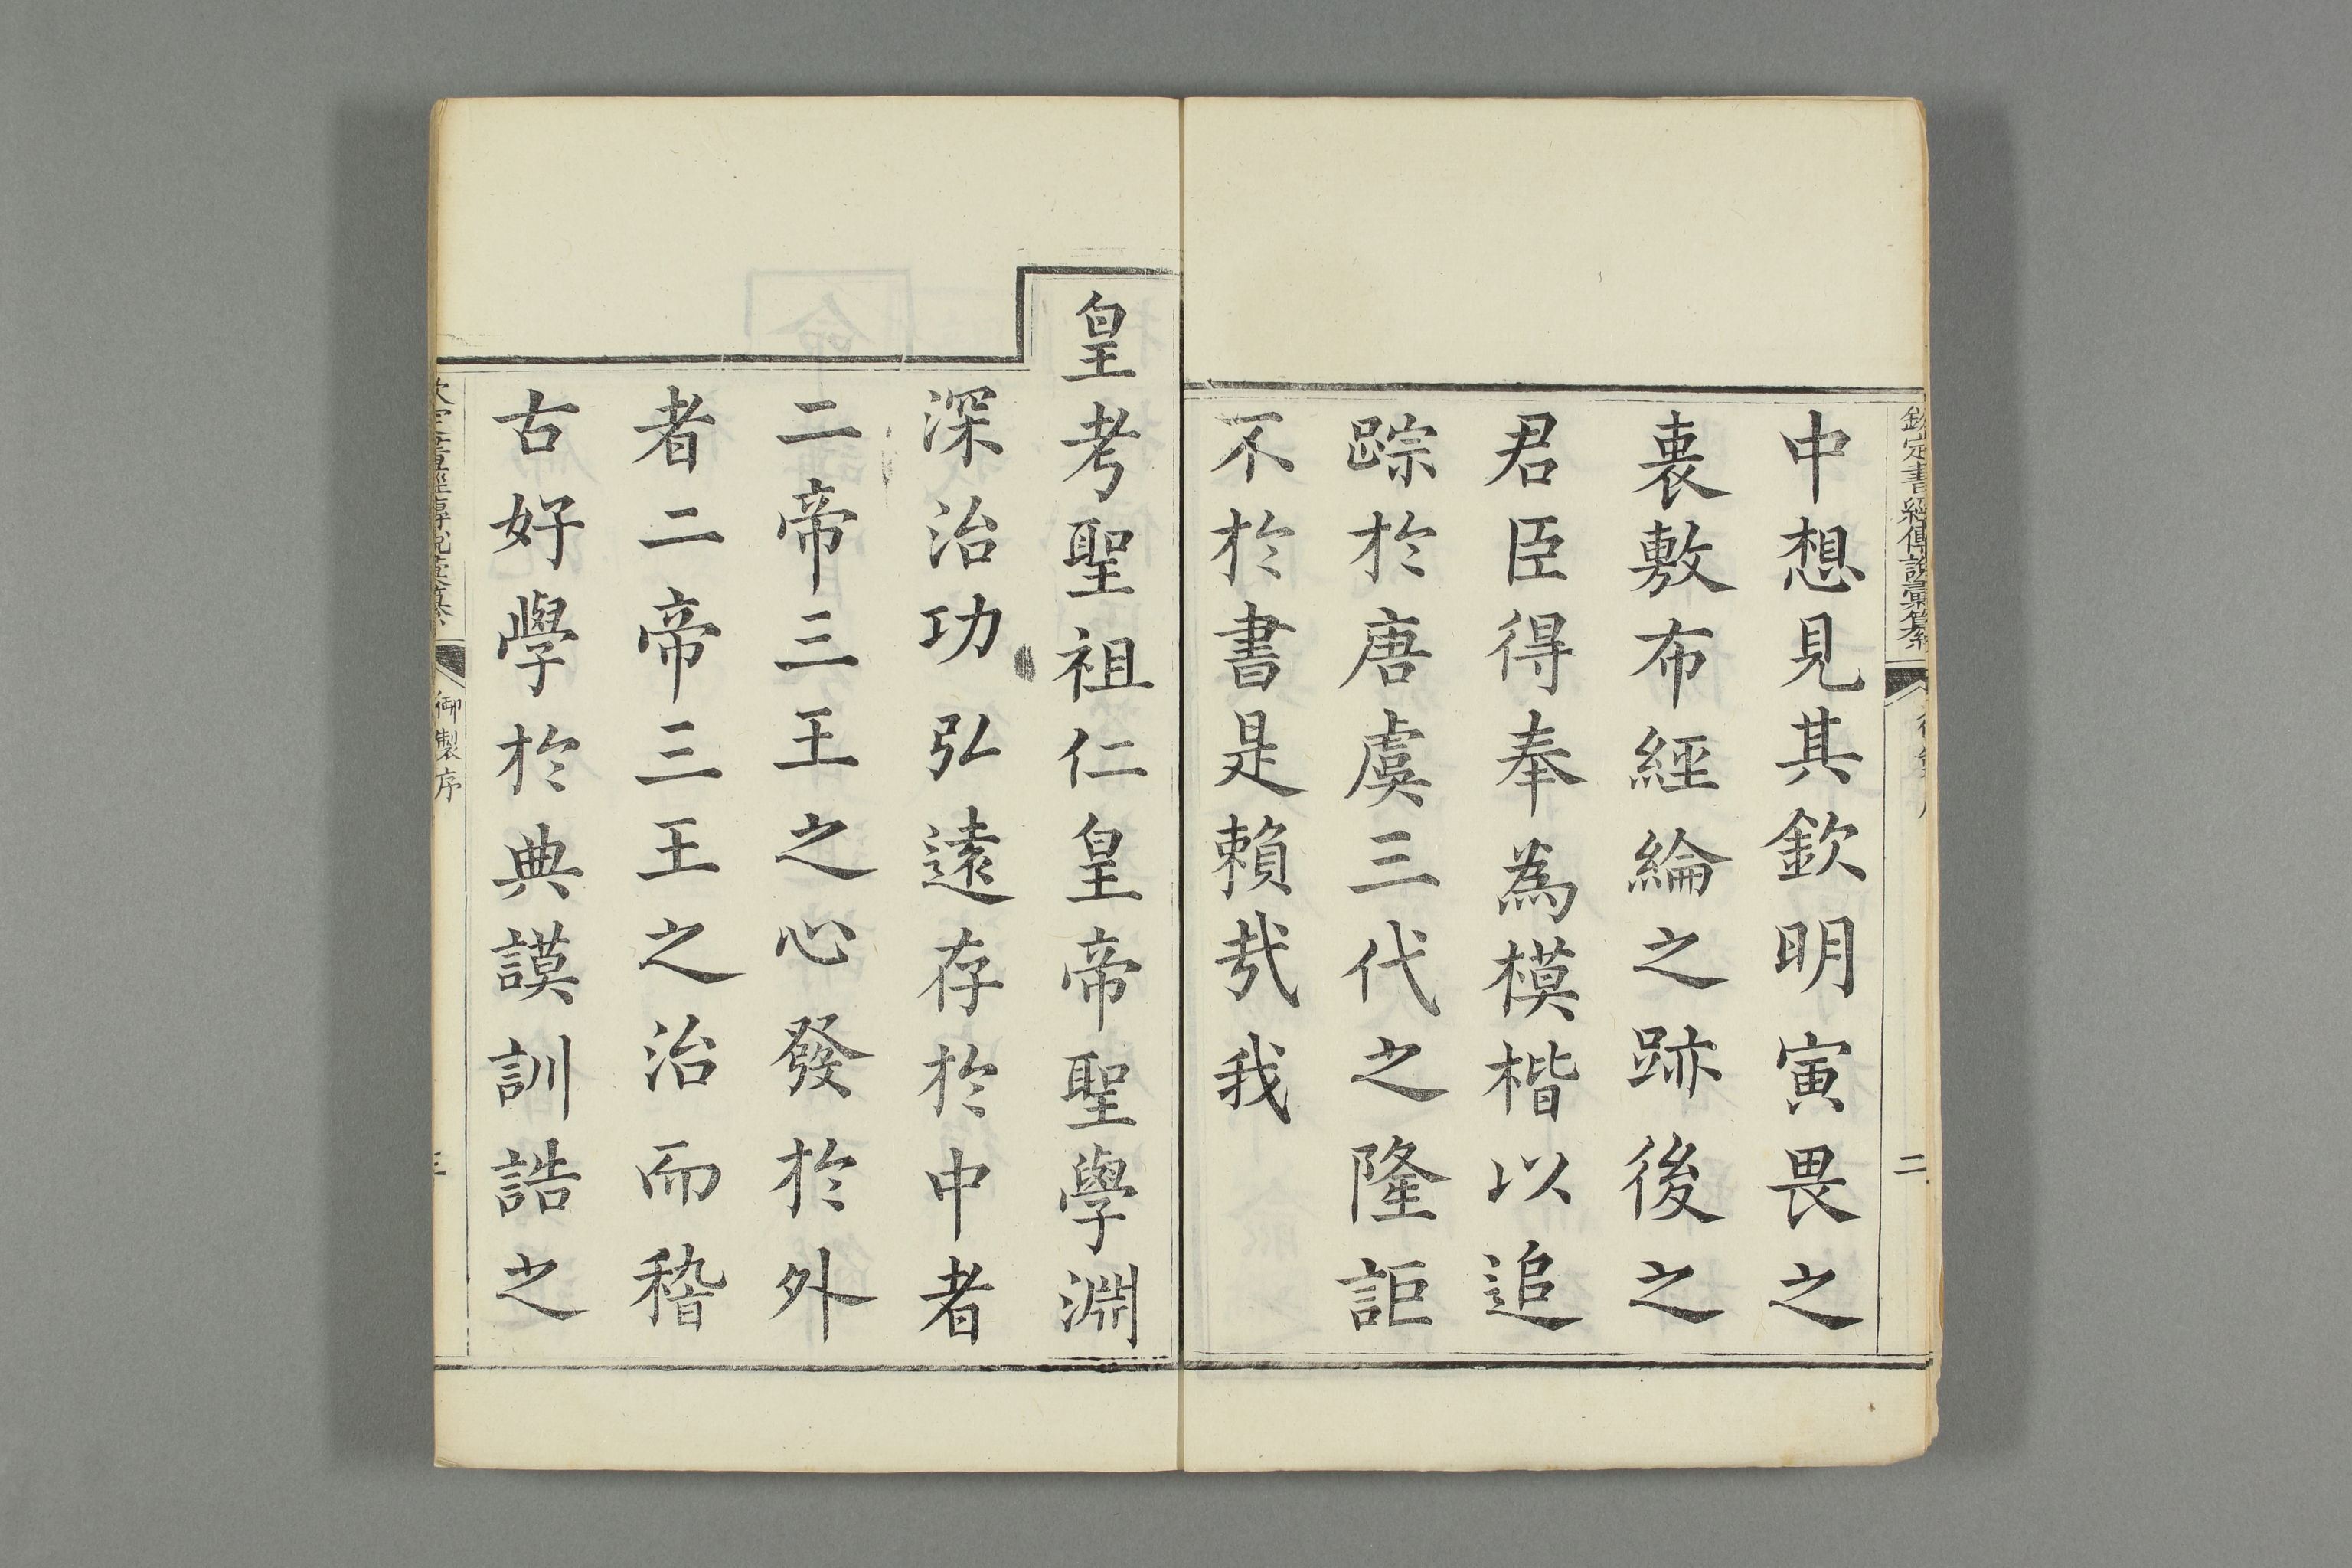 欽定書經傳說彙纂
二
中想見其欽明寅畏之
裏敷布經綸之跡後之
君臣得奉為模楷以追
踪於唐虞三代之隆詎
不於書是賴哉我
皇考聖祖仁皇帝聖學淵
深治功弘遠存於中者
二帝三王之心發於外
者二帝三王之治而稽
古好學於典謨訓誥之
御製序